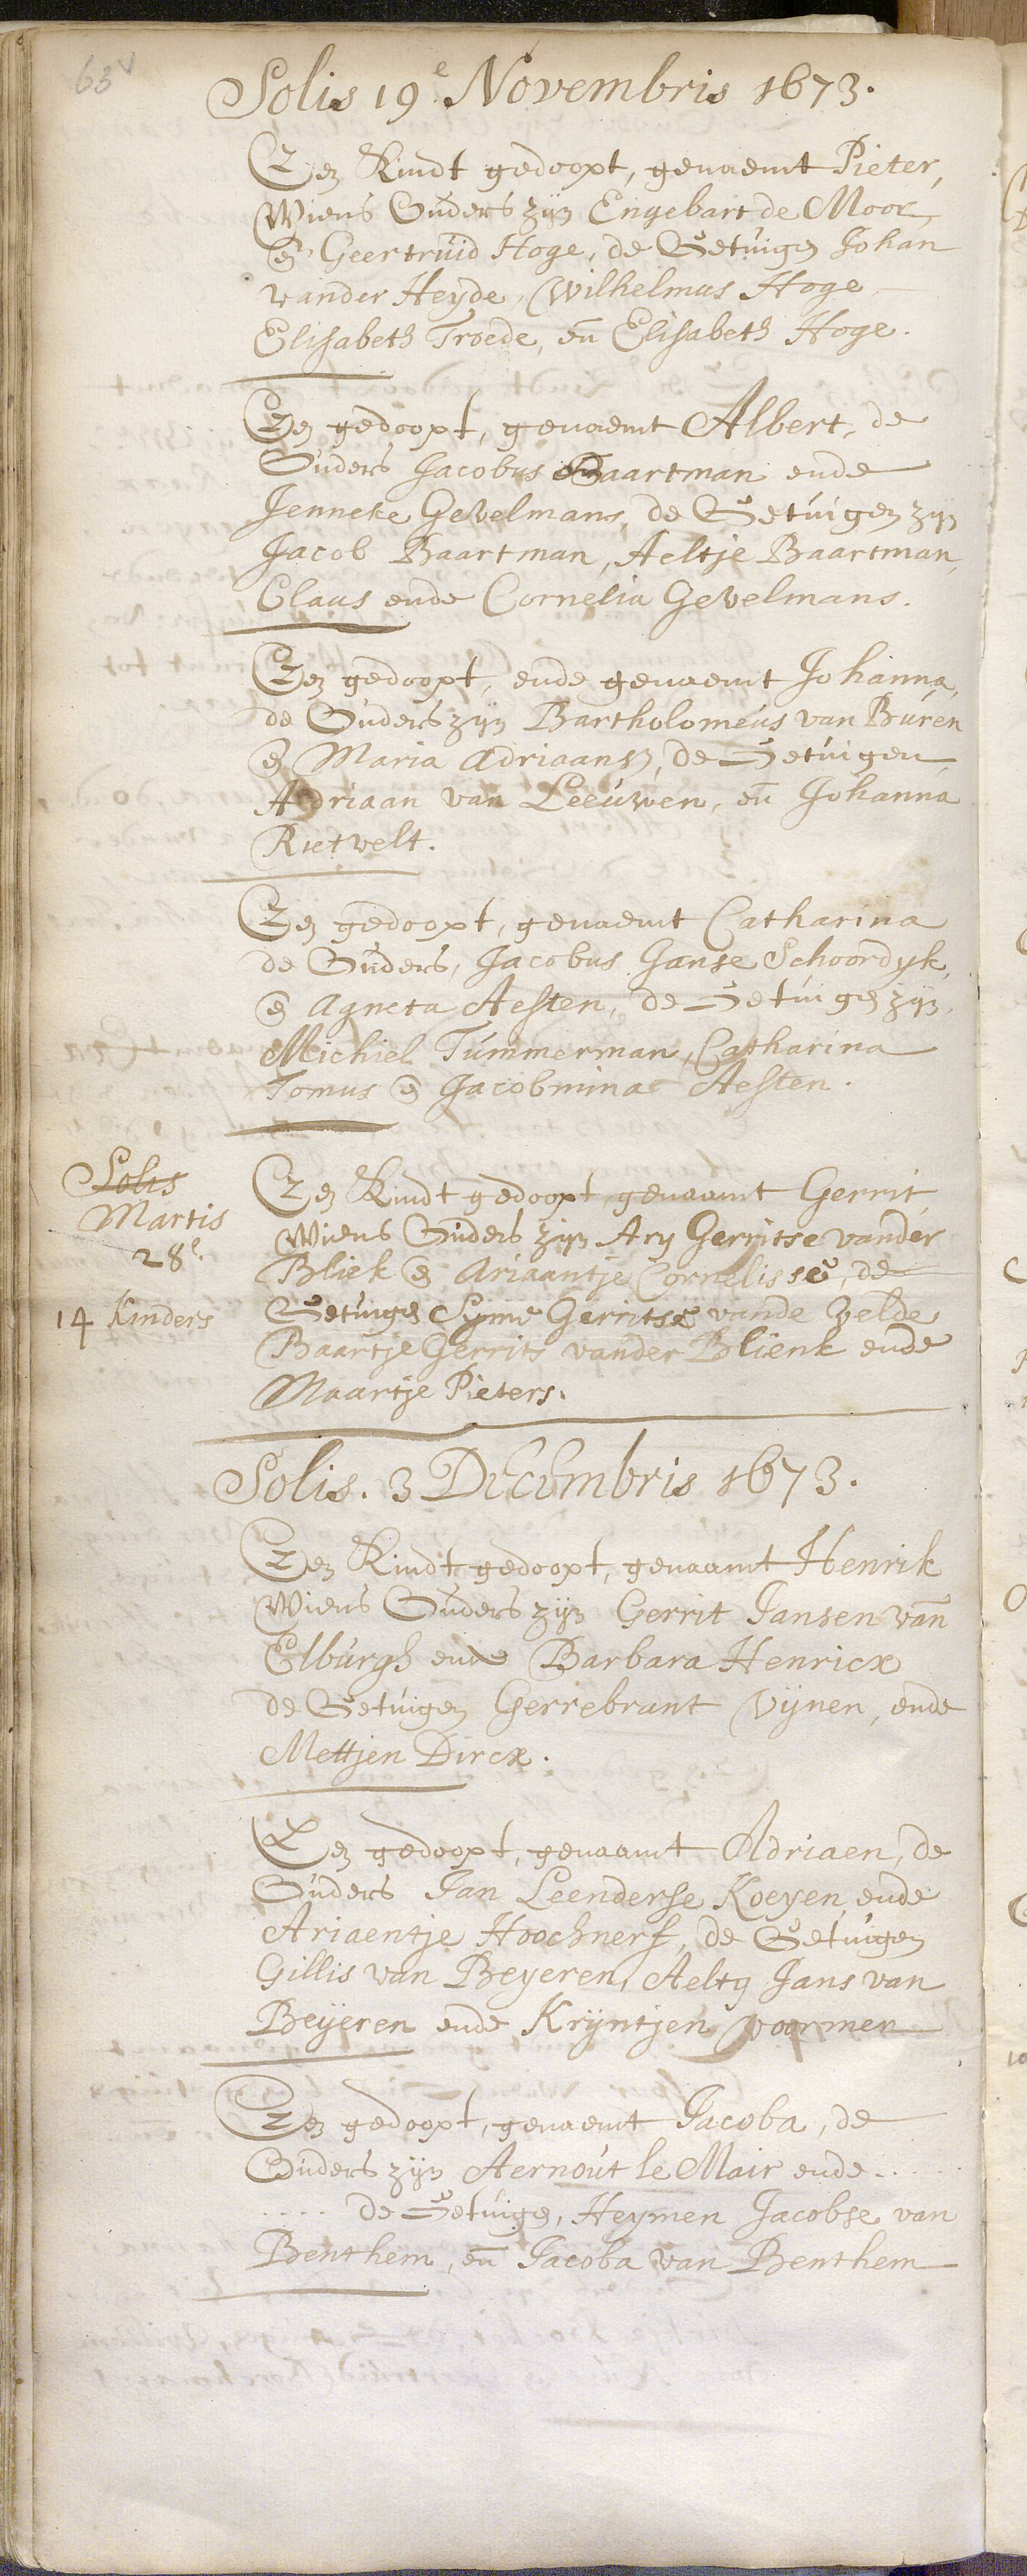 63v
Solis 19e Novembris 1673.
Een Kindt gedoopt, genaemt Pieter,
Wiens Ouders zijn Engebart de Moor
en Geertruid Hoge, de Getuigen Johan
vander Heyde, Wilhelmus Hoge
Elisabeth Troede, en Elisabeth Hoge.
Een gedoopt, genaemt Albert, de
Ouders Jacobus Baartman ende
Jenneke Gevelmans, de Getuigen zijn
Jacob Baartman, Aeltje Baartman,
Claas ende Cornelia Gevelmans.
Een gedoopt, ende genaemt Johanna,
de Ouders zijn Bartholomeus van Buren
en Maria Adriaans, de Getuigen
Adriaan van Leeuwen, en Johanna
Rietvelt.
Een gedoopt, genaemt Catharina
de Ouders, Jacobus Janse Schoordyk,
en Agneta Aesten, de Getuigen zijn
Michiel Tummerman, Catharina
Tomus en Jacobmina Aesten.
Solis
Martis
28e
14 Kinders
Een Kindt gedoopt, genaamt Gerrit,
Wiens Ouders zijn Ary Gerritse vander
Bliek en Ariaantje Cornelisse, de
Getuigen Syme Gerritse vande Velde
Baartje Gerrits vander Blienk ende
Maartje Pieters.
Solis. 3 Decembris 1673.
Een Kindt gedoopt, genaamt Henrik
Wiens Ouders zijn Gerrit Jansen van
Elburgh ende Barbara Henricx
de Getuigen Gerrebrant Vijnen, ende
Mettjen Dircx.
Een gedoopt, genaamt Adriaen, de
Ouders Jan Leenderse Koeyen ende
Ariaentje Hoochnerf, de Getuigen
Gillis van Beyeren, Aelty Jans van
Beijeren ende Kryntjen Voormen
Een gedoopt, genaemt Jacoba, de
Ouders zijn Aernout le Mair ende .....
.... de Getuigen, Heymen Jacobse van
Benthem, en Jacoba van Benthem